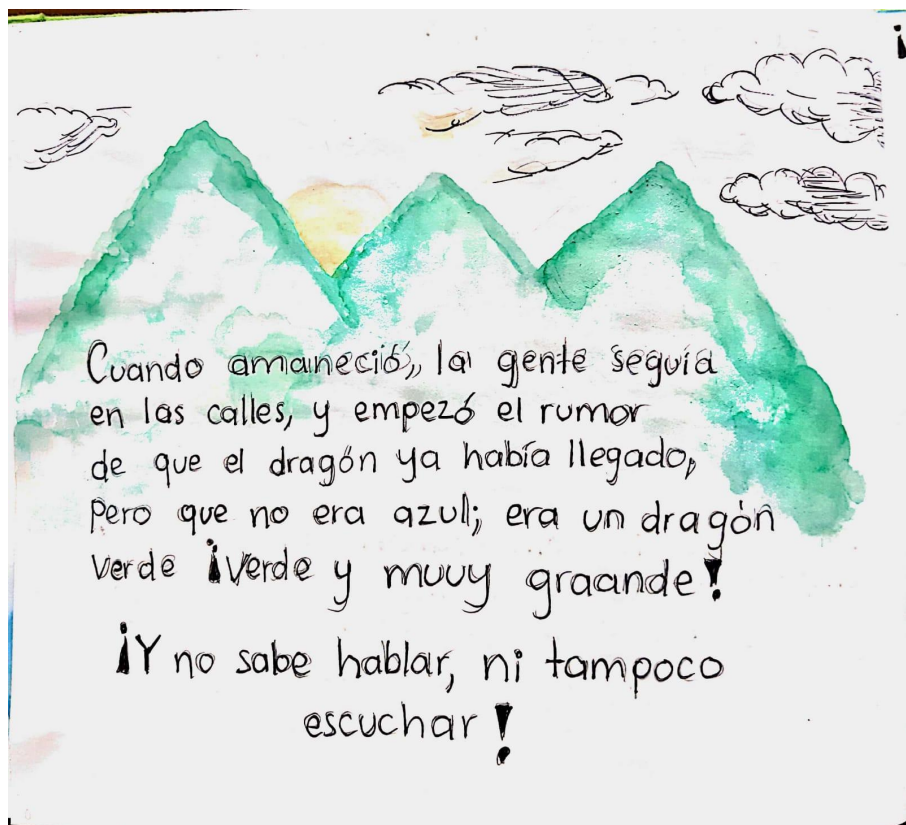 Cuando amaneció, la gente seguía
en las calles, y empezó el rumor
de que el dragón ya había llegado,
pero que no era azul; era un dragón
verde ¡verde y muuy graande!
¡Y no sabe hablar, ni tampoco
escuchar!